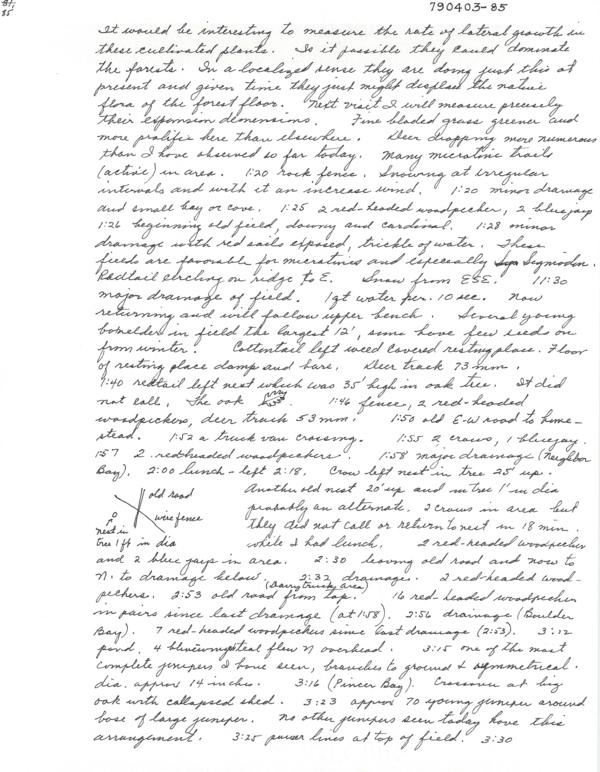 790403-85
84
85
It would be interesting to measure the rate of lateral growth in
these cultivated plants. Is it possible they could dominate
the forests. In a localized sense they are doing just this at
present and given time they just might displace the native
flora of the forest floor. Next visit I will measure precisely
their expansion dimensions. Fine bladed grass greener and
more prolific here than elsewhere. Deer dropping more numerous
than I have observed so far today. Many microtine trails
(active) in area. 1:20 rock fence. Snowing at irregular
intervals and with it an increase wind. 1:20 minor drainage
and small bay or cove. 1:25 2 red-headed woodpecker, 2 bluejays
1:26 beginning old field, downy and cardinal. 1:28 minor
drainage with red soils exposed, trickle of water. These
fields are favorable for microtines and especially Sigmodon.
Redtail circling on ridge to E. Snow from ESE. 11:30
major drainage of field. 1 qt water per. 10 sec. Now
returning and will follow upper bench. Several young
boxelder in field the largest 12', some have few seeds on
from winter. Cottontail left weed covered resting place. Floor
of resting place damp and bare. Deer track 73 mm.
1:40 redtail left nest which was 35' high in oak tree. It did
not call. The oak 1:46 fence, 2 red-headed
woodpeckers, deer track 53 mm. 1:50 old E-W road to home-
stead. 1:52 a truck van crossing. 1:55 2 crows, 1 bluejay.
1:57 2 redheaded woodpeckers. 1:58 major drainage (Neighbor
Bay). 2:00 lunch - left 2:18. Crow left nest in tree 25' up.
Another old nest 20' up and in tree 1' in dia
probably an alternate. 2 crows in area but
they did not call or return to nest in 18 min.
while I had lunch. 2 red-headed woodpecker
old road
wire fence
nest in
tree 1 ft in dia
and 2 blue jays in area. 2:30 leaving old road and now to
N. to drainage below. 2:32 drainage. 2 red-headed wood-
peckers. 2:53 old road from top. 16 red-headed woodpecker
in pairs since last drainage (at 1:58). 2:56 drainage (Boulder
Bay). 7 red-headed woodpeckers since last drainage (2:53). 3:12
pond, 4 bluewing teal flew N overhead. 3:15 one of the most
complete junipers I have seen, branches to ground & symmetrical.
dia. approx 14 inches. 3:16 (Pincer Bay). Crossover at big
oak with collapsed shed. 3:23 approx 70 young juniper around
base of large juniper. No other junipers seen today have this
arrangement. 3:25 power lines at top of field. 3:30